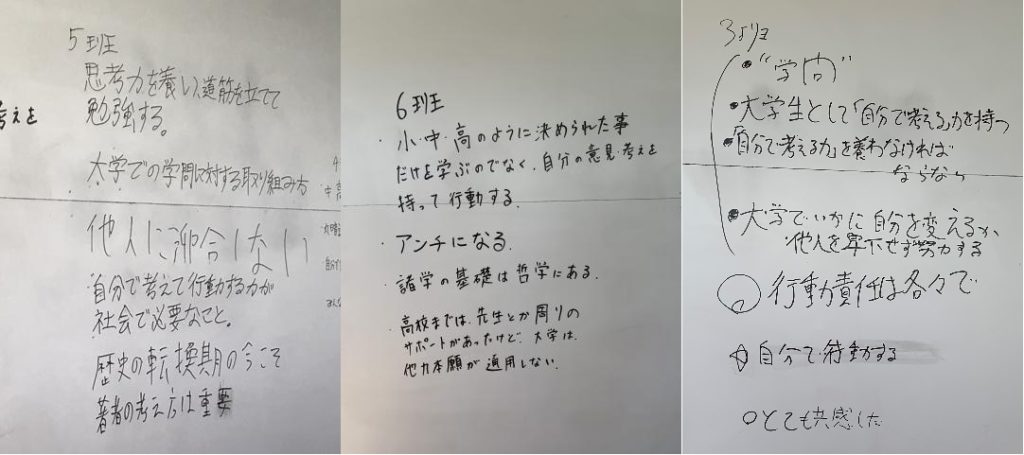 5班
思考力を養い、道筋を立てて
勉強する。
大学での学問に対する取り組み方
他人に迎合しない
自分で考えて行動する力が
社会で必要なこと。
歴史の転換期の今こそ
著者の考え方は重要
考えを
6班
・小・中・高のように決められた事
だけを学ぶのでなく、自分の意見・考えを
持って行動する。
・アンチになる。
諸学の基礎は哲学にある。
・高校までは、先生とか周りの
サポートがあったけど、大学は、
他力本願が通用しない。
3班
・“学問”
・大学生として「自分で考える」力を持つ
・「自分で考える力」を養わなければ
ならない
・大学でいかに自分を変えるか、
他人を卑下せず努力する
行動責任は各々で
☆自分で行動する
○とても共感した